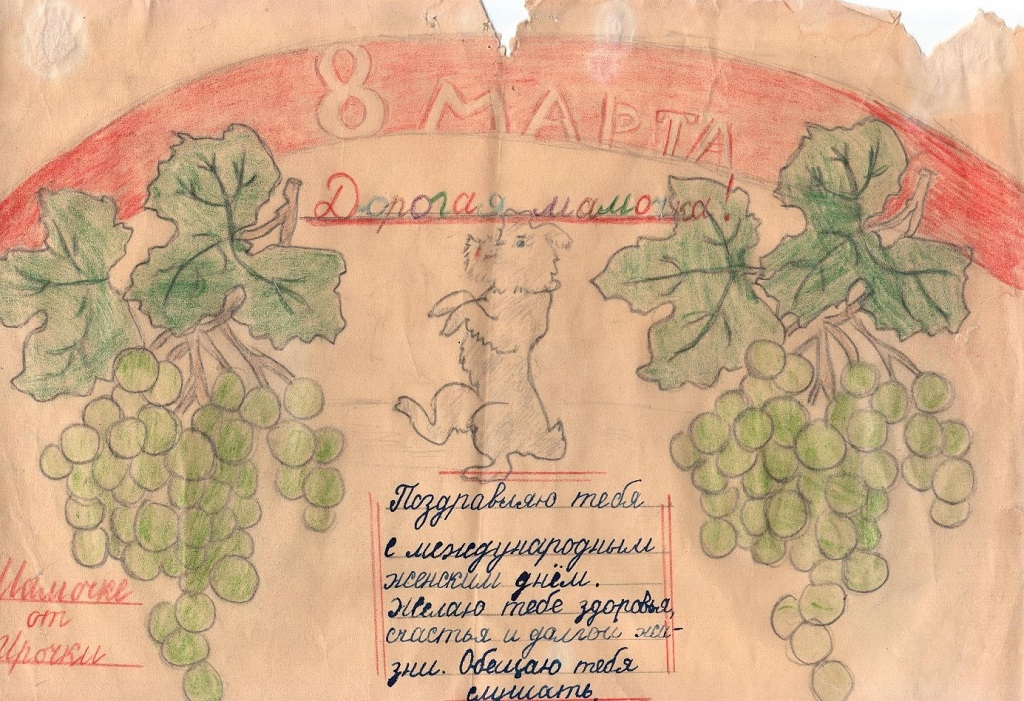 8 МАРТА
Дорогая мамочка!
Поздравляю тебя
с международным
женским днём.
Желаю тебе здоровья,
счастья и долгой жи-
зни. Обещаю тебя
слушать.
Мамочке
от
Ирочки